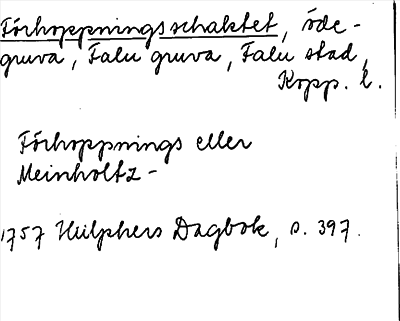 Förhoppningsschaktet, öde-
gruva, Falu gruva, Falu stad,
Kopp. l.
Förhoppnings eller
Meinholtz -
1757 Hülphers Dagbok, s. 397.